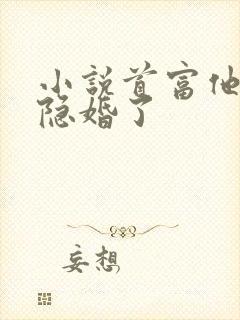 小说首富他
隐婚了
妄想